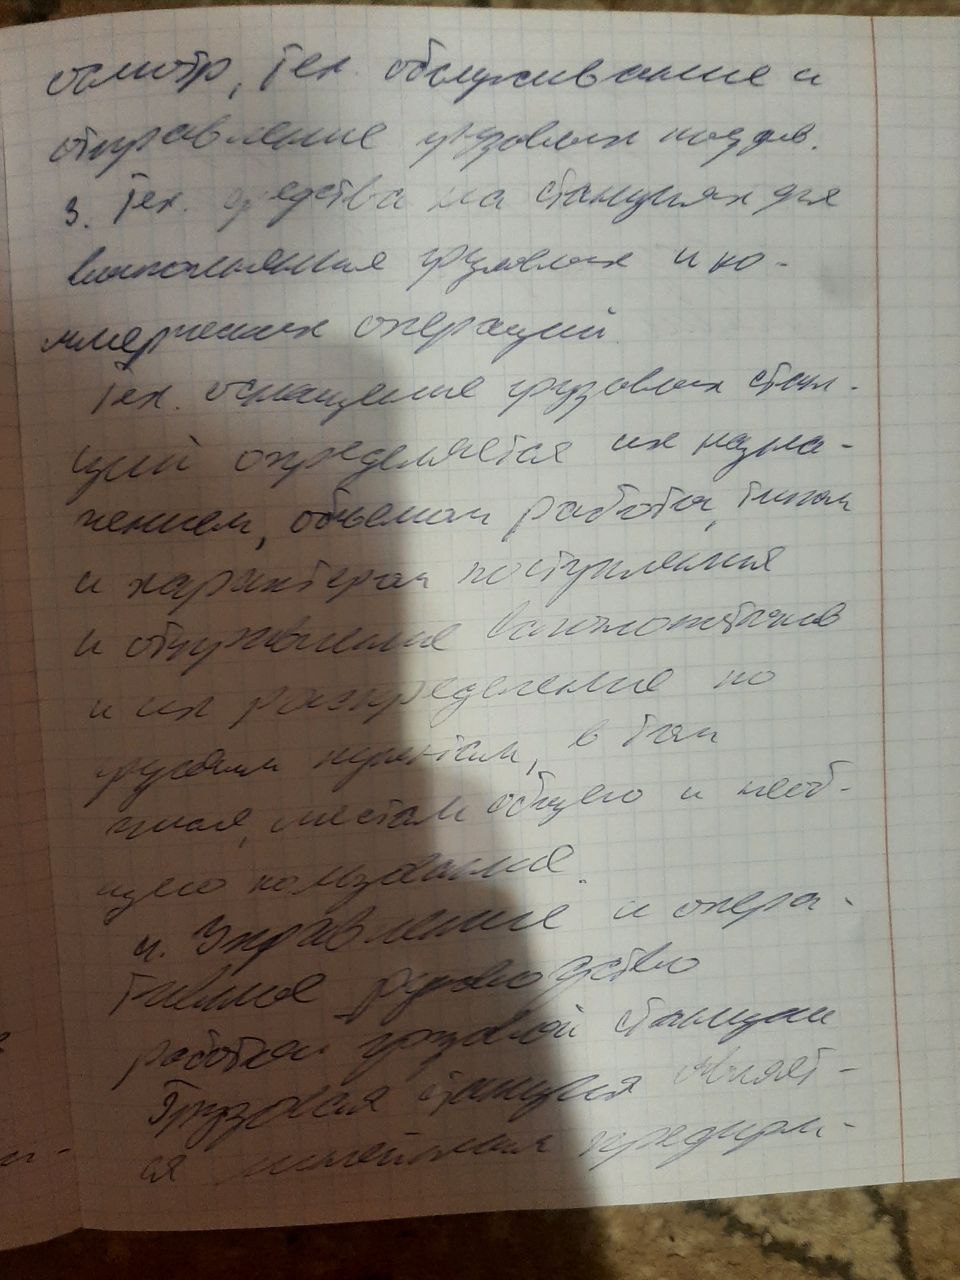 осмотр, тех. обслуживание и
отправление грузовых поездов.
3. Тех. средства на станциях для
выполнения грузовых и ко-
ммерческих операций.
Тех. оснащение грузовых стан-
ций определяется их назна-
чением, объемом работы, типом
и характером поступления
и отправление вагонопотоков
и их распределение по
грузовым пунктам, в том
числе, местам общего и необ-
щего пользование.
4. Управление и опера-
тивное руководство
работой грузовой станции
Грузовая станция являет-
ся линейным предприя-